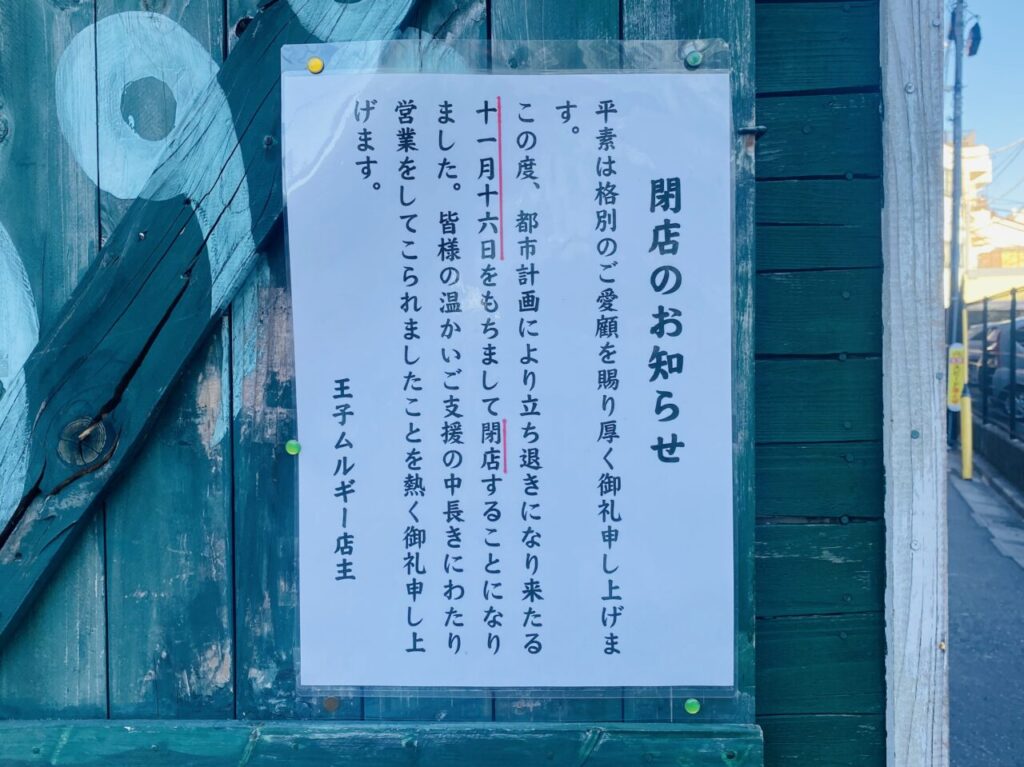 閉店のお知らせ
平素は格別のご愛顧を賜り厚く御礼申し上げま
す。
この度、都市計画により立ち退きになり来たる
十一月十六日をもちまして閉店することになり
ました。皆様の温かいご支援の中長きにわたり
営業をしてこられましたことを熱く御礼申し上
げます。
王子ムルギー店主